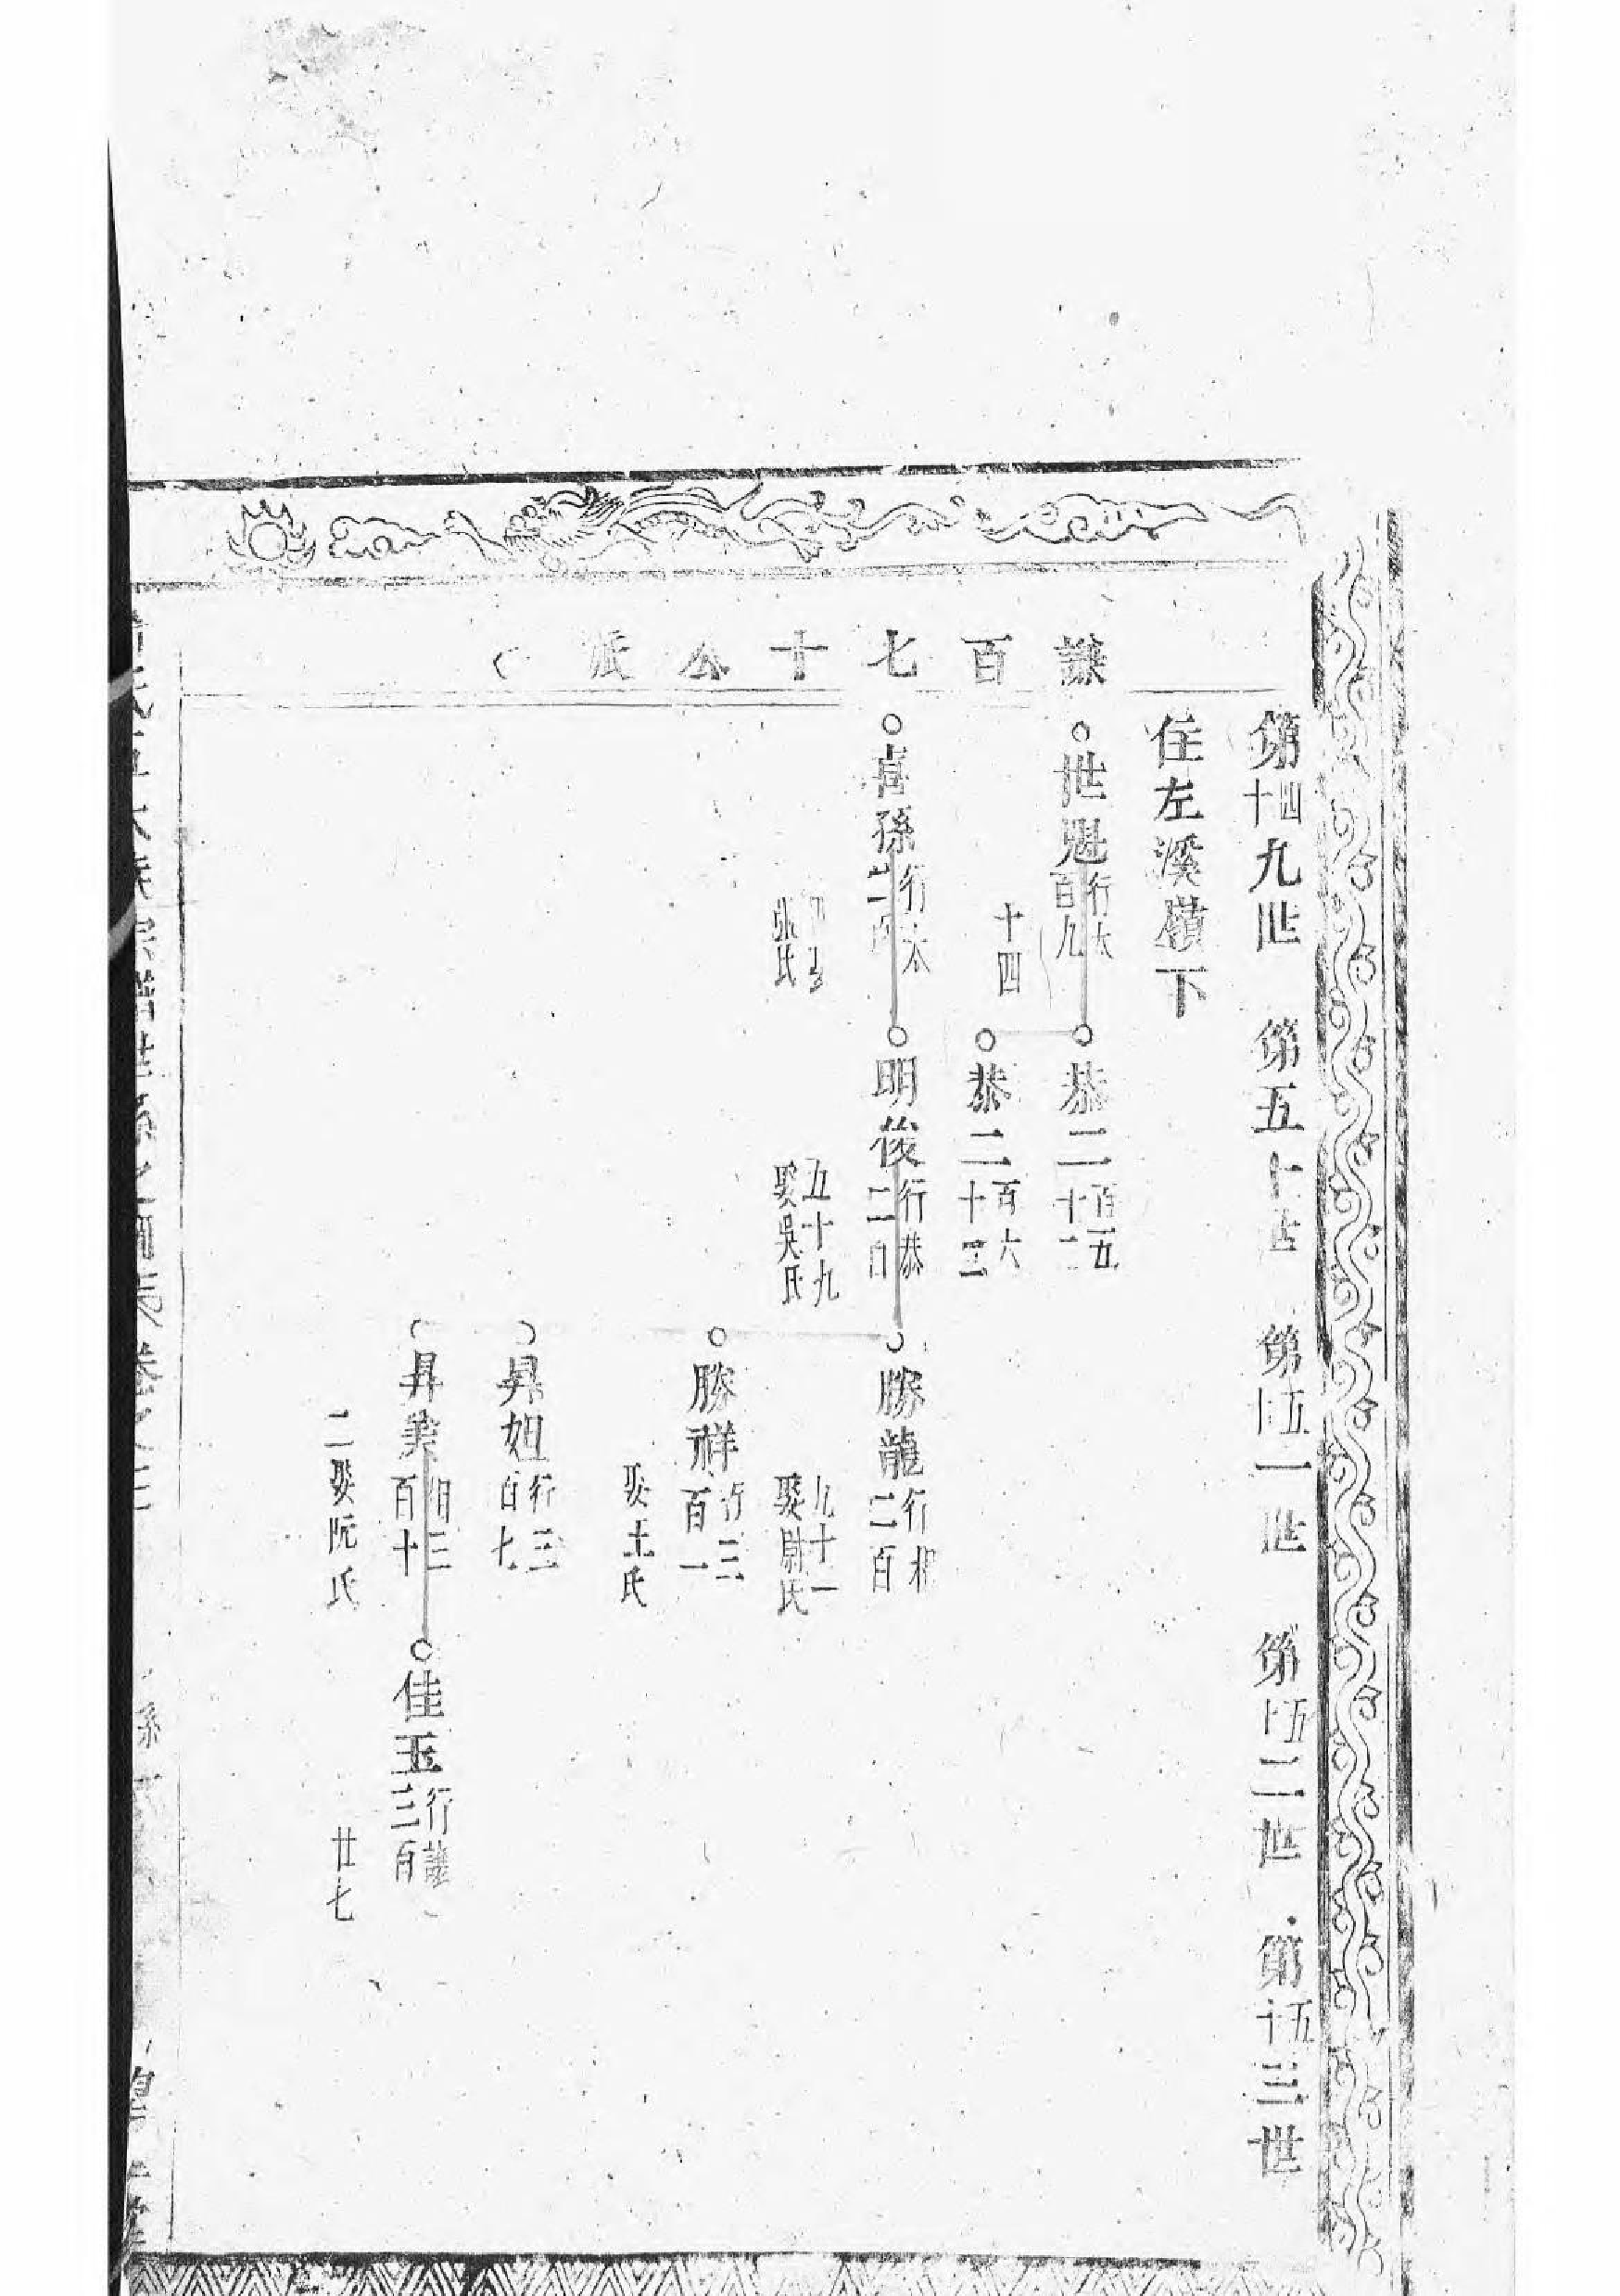 謙百七十公派
第四十九世 第五十世 第五十一世 第五十二世 第五十三世
住左溪嶺下
世魁行太百九
十四
恭二百五十二
恭二百六十三
喜孫行太二百
張氏
明後行恭二百
五十九娶吳氏
勝龍行相二百
九十一娶尉氏
勝祥行三百一
娶王氏
昇妲行三百七
昇美相三百十
二娶阮氏
佳玉行謙三百
廿七